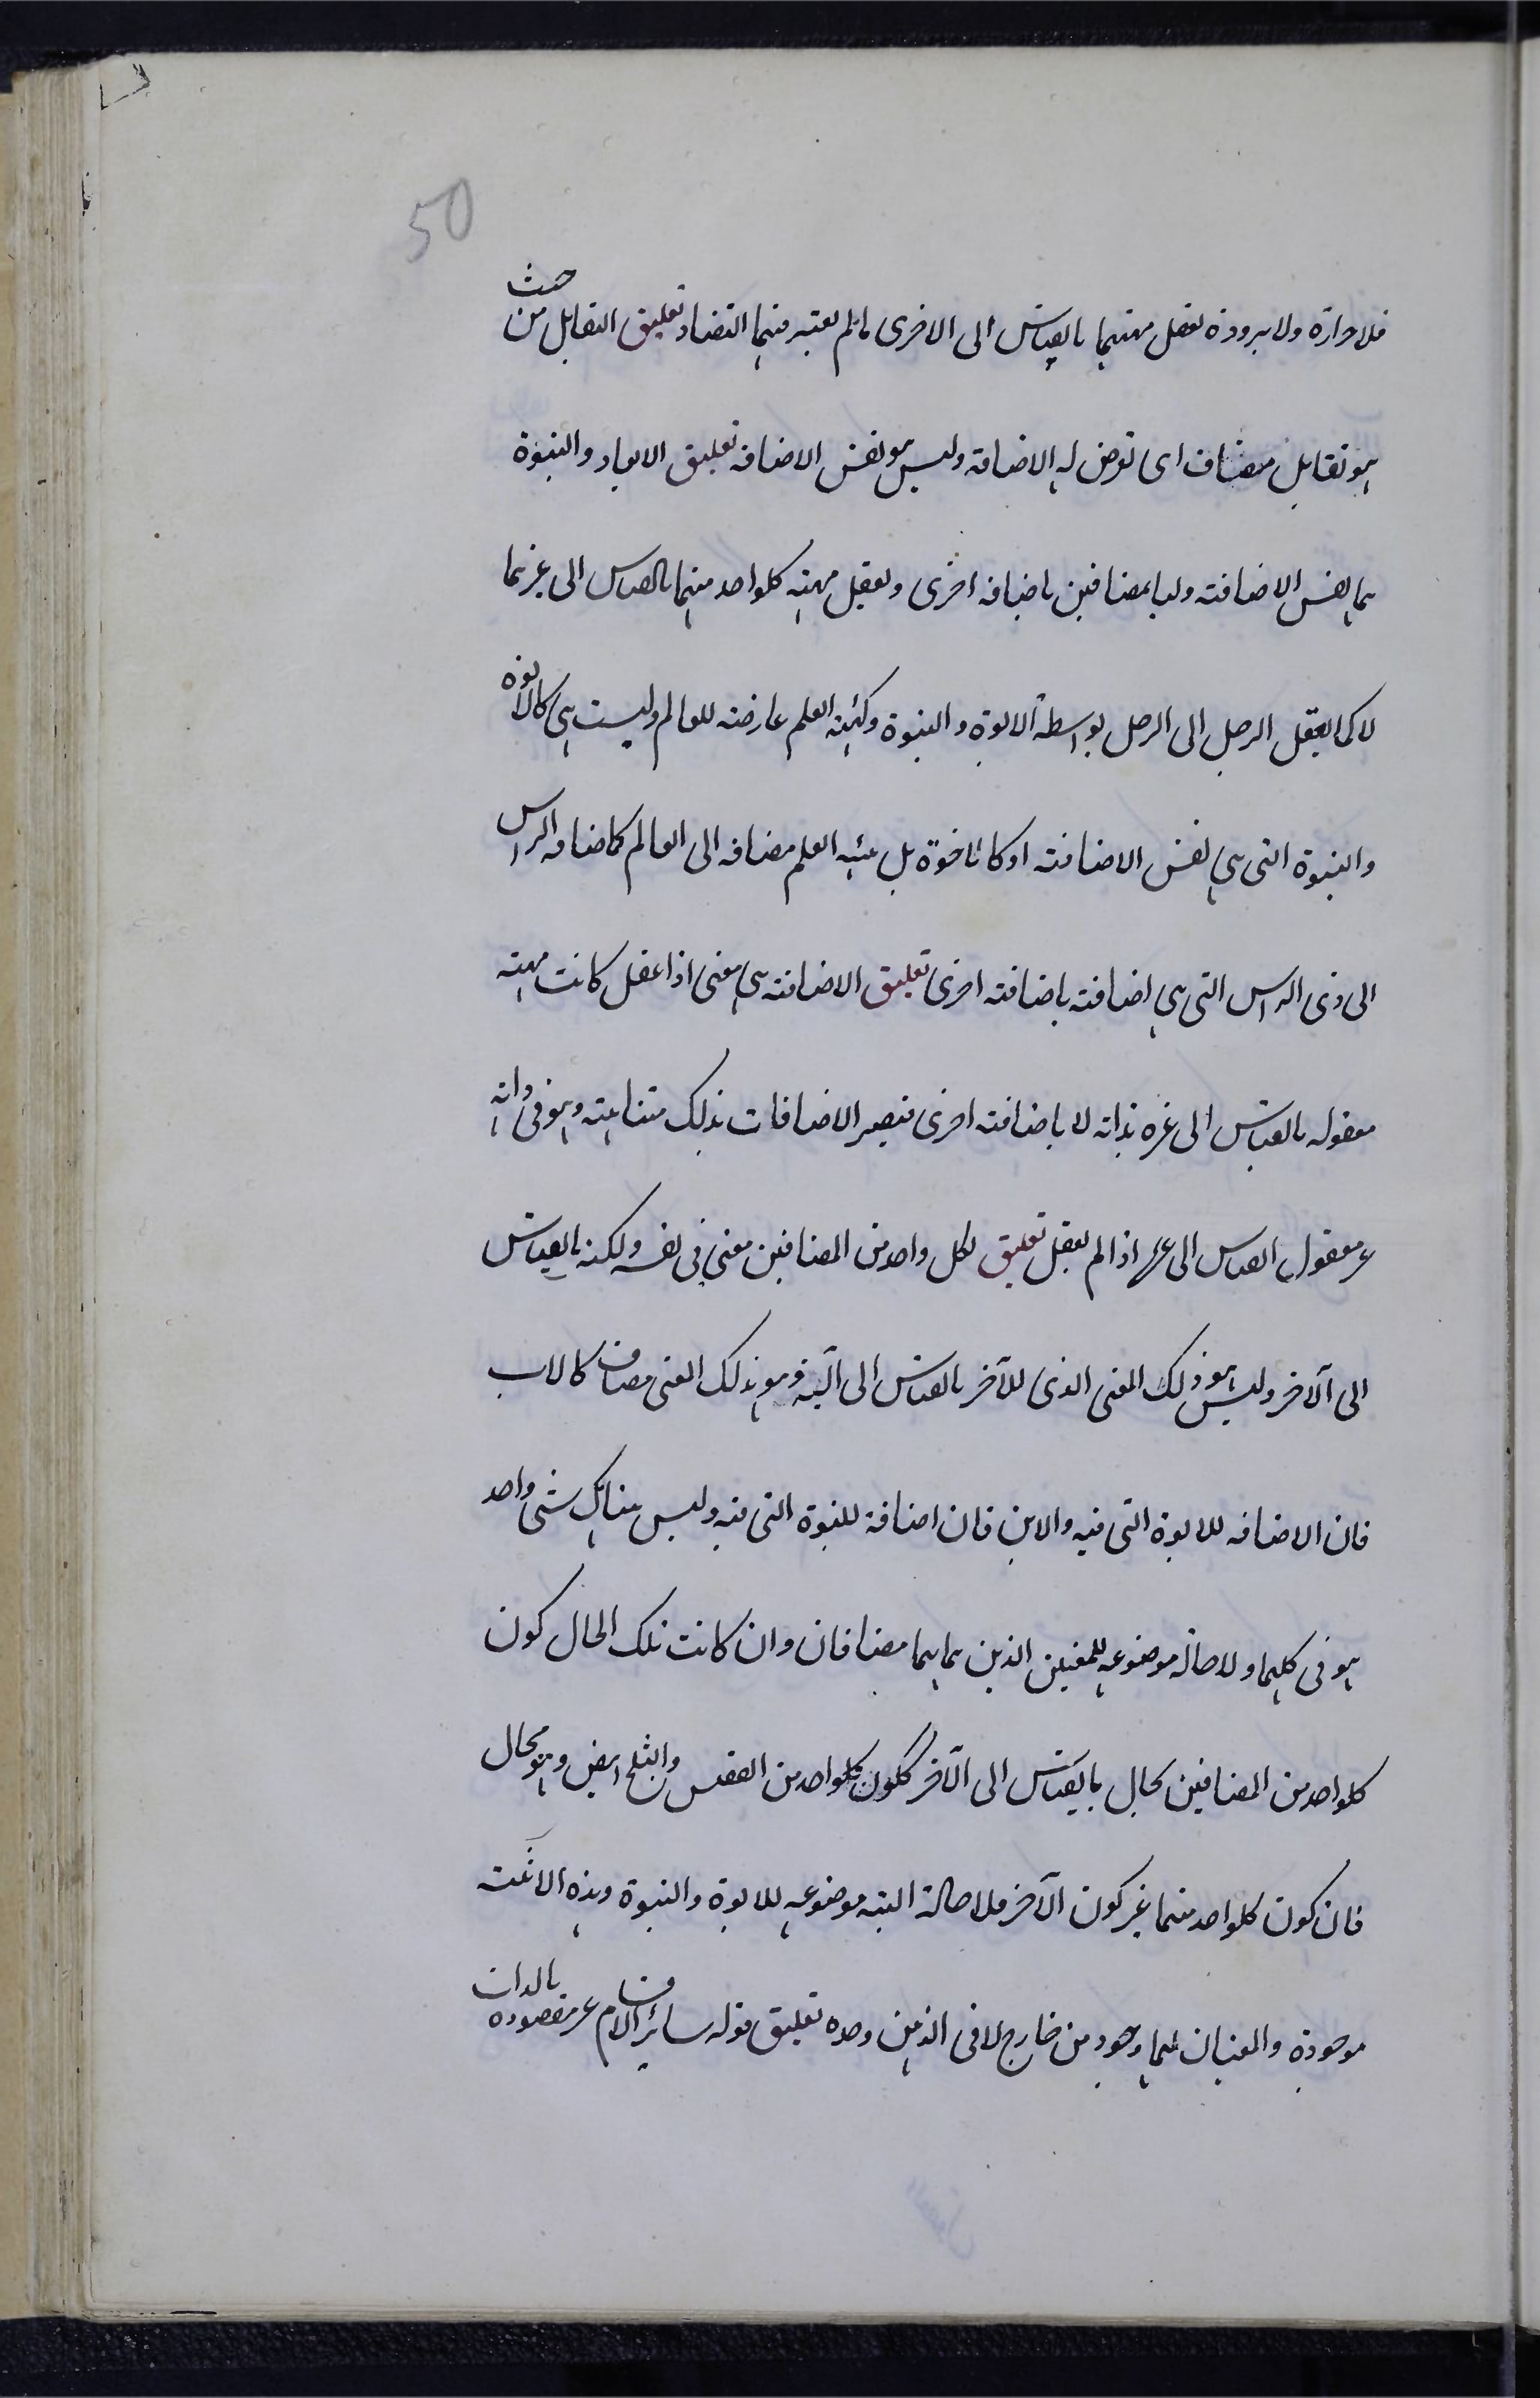 50
فلا حرارة ولا برودة تعقل مهيتهما بالقياس الى الاخرى ما لم يعتبر فيهما التضاد تعليق التقابل من حيث
هو تقابل مضاف اى تعرض له الاضافة وليس هو نفس الاضافه تعليق الابوة والبنوة
هما نفس الاضافته وليا بمضافين باضافه اخرى وتعقل مهيته كلواحد منهما بالقياس الى غيرهما
لا كما يعقل الرجل الى الرجل بواسطة الابوة و البنوة وهيئة العلم عارضته للعالم وليست هى كالابوه
والبنوة التى هى نفس الاضافته او كالاخوة بل هيئه العلم مضافه الى العالم كاضافه الراس
الى ذى الراس التى هى اضافته باضافته اخرى تعليق الاضافته هى معنى اذا عقل كانت مهيته
معقوله بالقياس الى غيره بذاته لا باضافته اخرى فيصير الاضافات بذلك متناهيته وهو فى ذاته
غير معقول بالقياس الى غيرها اذا لم يعقل تعليق لكل واحد من المضافين معنى فى نفسه ولكنه بالقياس
الى الآخر وليس هو ذلك المعنى الذى للآخر بالقياس الى آليه وهو بذلك المعنى مضاف كالاب
فان الاضافه للابوة التى فيه والابن فان اضافة للبنوة التى فيه وليس هناك شئ واحد
هو فى كليهما ولا حالة موضوعه للمعنيين الذين هما بهما مضافان وان كانت تلك الحال كون
كلواحد من المضافين بحال بالقياس الى الآخر ككون كلواحد من الققنس والثلج ابيض وهو محال
فان كون كلواحد منهما غير كون الآخر فلا حالة البته موضوعه للابوة والبنوة وهذه الاثنينية
موجودة والمعنيان لهما وجود من خارج لا فى الذهن وحده تعليق قوله سائر الاقسام غير مقصوده بالذات